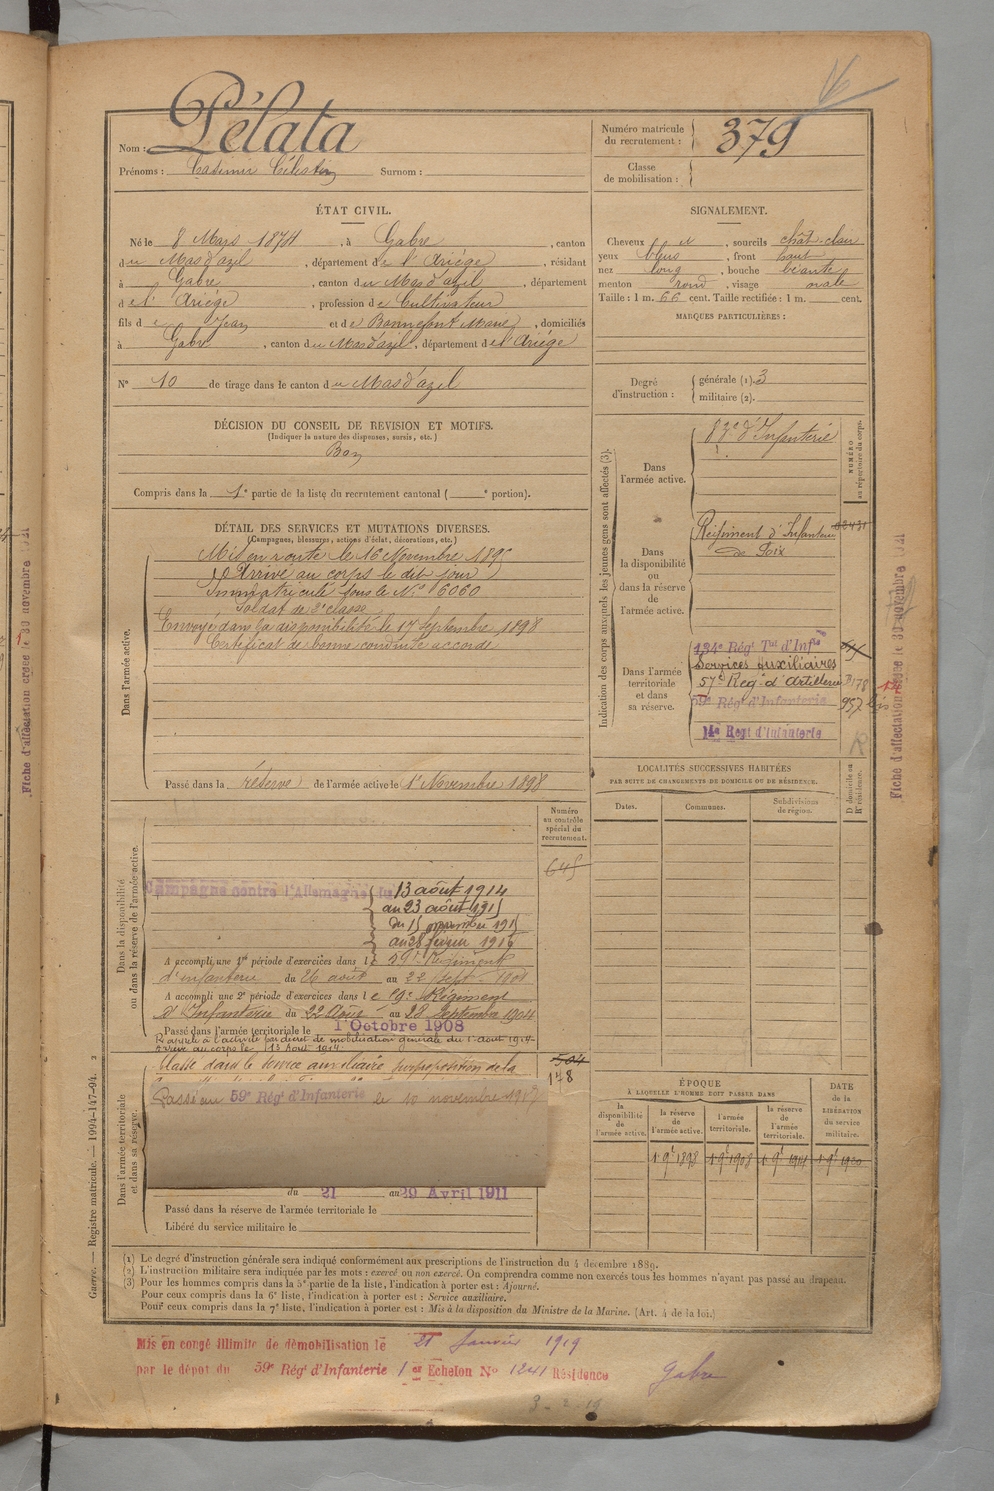 16
Nom : Pélata
Prénoms : Casimir Célestin Surnom :
Numéro matricule du recrutement : 379
Classe de mobilisation :
ÉTAT CIVIL.
Né le 8 Mars 1874, à Gabre, canton
du Mas d'azil, département de l'Ariége, résidant
à Gabre, canton du Mas d'azil, département
de l'Ariége, profession de Cultivateur
fils de Jean et de Bonnefont Marie, domiciliés
à Gabre, canton du Mas d'azil, département de l'Ariége
N° 10 de tirage dans le canton du Mas d'azil
SIGNALEMENT.
Cheveux , sourcils chât-clair
yeux bleus, front haut
nez long, bouche béante
menton rond, visage ovale
Taille : 1 m. 66 cent. Taille rectifiée : 1 m. cent.
MARQUES PARTICULIÈRES :
Degré d'instruction :
générale (1). 3
militaire (2).
DÉCISION DU CONSEIL DE REVISION ET MOTIFS.
(Indiquer la nature des dispenses, sursis, etc.)
Bon
Compris dans la 1e partie de la liste du recrutement cantonal ( e portion).
DÉTAIL DES SERVICES ET MUTATIONS DIVERSES.
(Campagnes, blessures, actions d'éclat, décorations, etc.)
Dans l'armée active.
Mis en route le 16 Novembre 1895
Arrivé au corps le dit jour
Immatriculé sous le N° 6060
Soldat de 2e classe
Envoyé dans la disponibilité le 17 Septembre 1898
Certificat de bonne conduite accordé
Passé dans la réserve de l'armée active le 1er Novembre 1898
Indication des corps auxquels les jeunes gens sont affectés (3).
NUMÉRO au répertoire du corps.
Dans l'armée active.
d'Infanterie
Dans la disponibilité ou dans la réserve de l'armée active.
Régiment d'Infanterie
de Foix
Dans l'armée territoriale et dans sa réserve.
134e Régt Tal d'Inf
Services auxiliaires
57e Reg. d'Artillerie 178
59e Régt d'Infanterie 957 bis
14e Regt d'Infanterie
R
LOCALITÉS SUCCESSIVES HABITÉES
PAR SUITE DE CHANGEMENTS DE DOMICILE OU DE RÉSIDENCE.
D domicile ou R résidence.
Dates. Communes. Subdivisions de région.
Numéro au contrôle spécial du recrutement.
645
Dans la disponibilité ou dans la réserve de l'armée active.
Campagne contre l'Allemagne du 13 août 1914
au 23 août 1915
du 15 novembre 1915
au 28 février 1916
A accompli une 1re période d'exercices dans le 59e Régiment
d'infanterie du 26 août au 22 Sept. 1901
A accompli une 2e période d'exercices dans le Régiment
d'Infanterie du 22 Août au 28 Septembre 1904
Passé dans l'armée territoriale le 1 Octobre 1908
Rappelé à l'activité par décret de mobilisation générale du 1er août 1914
Arrivé au corps le 13 Août 1914
Dans l'armée territoriale et dans sa réserve.
Classé dans le service auxiliaire proposition de la
504
178
Passé au 59e Régt d'Infanterie le 10 novembre 1917
du 21 au 29 Avril 1911
Passé dans la réserve de l'armée territoriale le
Libéré du service militaire le
ÉPOQUE
À LAQUELLE L'HOMME DOIT PASSER DANS
la disponibilité de l'armée active.
la réserve de l'armée active.
l'armée territoriale.
la réserve de l'armée territoriale.
DATE de la LIBÉRATION du service militaire.
1 9bre 1898 1 9bre 1908
(1) Le degré d'instruction générale sera indiqué conformément aux prescriptions de l'instruction du 4 décembre 1889.
(2) L'instruction militaire sera indiquée par les mots : exercé ou non exercé. On comprendra comme non exercés tous les hommes n'ayant pas passé au drapeau.
(3) Pour les hommes compris dans la 5e partie de la liste, l'indication à porter est : Ajourné.
Pour ceux compris dans la 6e liste, l'indication à porter est : Service auxiliaire.
Pour ceux compris dans la 7e liste, l'indication à porter est : Mis à la disposition du Ministre de la Marine. (Art. 4 de la loi.)
Guerre. — Registre matricule. — 1994-147-94. 2
Mis en congé illimité de démobilisation le 21 Janvier 1919
par le dépôt du 59e Régt d'Infanterie 1er Echelon N° 1241 Résidence Gabre
Fiche d'affectation créée le 30 novembre 1921
Fiche d'affectation créée le 30 novembre 1921